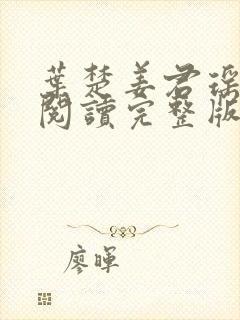 葉楚姜君瑤
閱讀完整版
廖暉